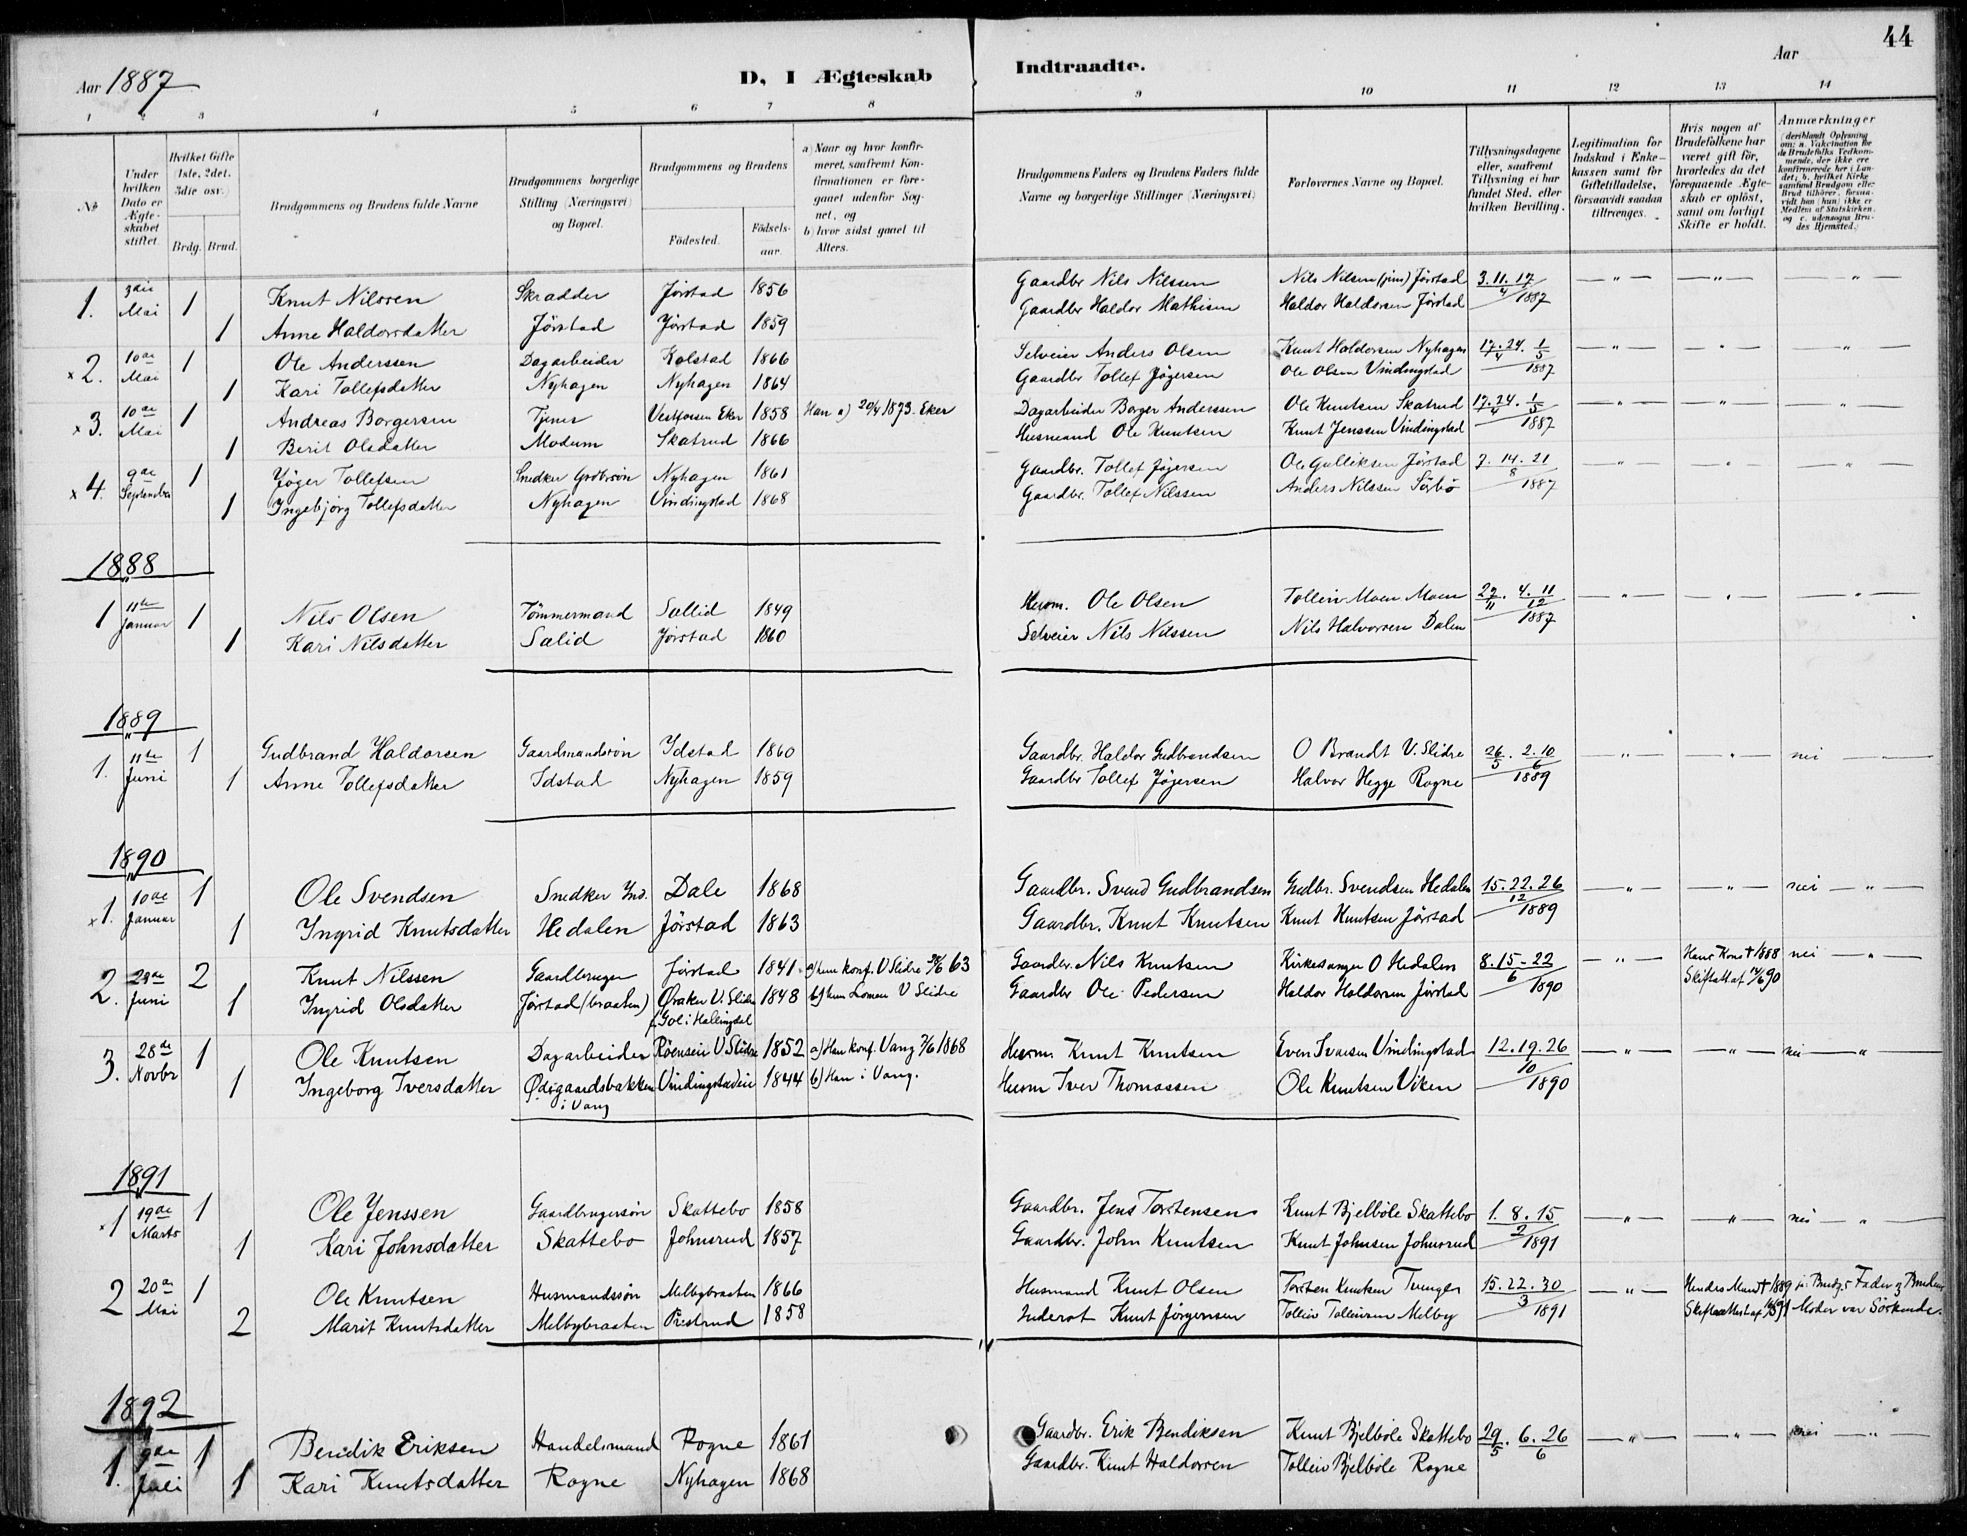 44
Aar 1887
D. I Ægteskab Indtraadte.
Aar
1 2 3 4 5 6 7 8 9 10 11 12 13 14
No.
Under hvilken Dato er Ægteskabet stiftet.
Hvilket Gifte (1ste, 2det, 3die osv.)
Brdg. Brud.
Brudgommens og Brudens fulde Navne
Brudgommens borgerlige Stilling (Næringsvei) og Bopæl.
Brudgommens og Brudens
Fødested.
Fødselsaar.
a) Naar og hvor konfirmeret, saafremt Konfirmationen er foregaaet udenfor Sognet, og
b) hvor sidst gaaet til Alters.
Brudgommens Faders og Brudens Faders fulde Navne og borgerlige Stillinger (Næringsvei)
Forlovernes Navne og Bopæl.
Tillysningsdagene eller, saafremt Tillysning ei har fundet Sted, efter hvilken Bevilling.
Legitimation for Indskud i Enkekassen samt for Giftetilladelse, forsaavidt saadan tiltrænges.
Hvis nogen af Brudefolkene har været gift før, hvorledes da det foregaaende Ægteskab er opløst, samt om lovligt Skifte er holdt.
Anmærkninger (deriblandt Oplysning om: a. Vakcination for de Brudefolks Vedkommende, der ikke ere konfirmerede her i Landet; b. hvilket Kirkesamfund Brudgom eller Brud tilhører, forsaavidt han (hun) ikke er Medlem af Statskirken, og c. udensogns Brudes Hjemsted.)
1. 3die Mai 1 Knut Nilssen Skrædder Jørstad 1856 Gaardbr Nils Nilssen Nils Nilsen (jun) Jørstad 3. 11. 17 / 4 1887 — " — — " — "
1 Anne Haldorsdatter Jørstad Jørstad 1859 Gaardbr Haldor Mathisen Haldor Haldorsen Jørstad
x 2. 10de Mai 1 Ole Anderssen Dagarbeider Kolstad 1866 Selveier Anders Olsen Knut Haldorsen Nyhagen 17. 24. / 4 1/5 1887 — " — " — " —
1 Kari Tollefsdatter Nyhagen Nyhagen 1864 Gaardbr Tollef Jøgersen Ole Olsen Vindingstad
x 3. 10de Mai 1 Andreas Borgersen Tjener Vestfossen Eker 1858 Han a) 20/4 1873. Eker Dagarbeider Borger Anderssen Ole Knutsen Skatrud 17. 24. / 4 1/5 1887 — " — " — " —
1 Berit Olsdatter Modum Skatrud 1866 Husmand Ole Knutsen Knut Jenssen Vindingstad
x 4. 9de September 1 Jøger Tollefsen Snedker Grdbrsøn Nyhagen 1861 Gaardbr. Tollef Jøgersen Ole Gulliksen Jørstad 7. 14. 21 / 8 1887 — " — " — " —
1 Ingebjørg Tollefsdatter Nyhagen Vindingstad 1868 Gaardbr. Tollef Nilssen Anders Nilssen Sørbø
1888
1 11te Januar 1 Nils Olsen Tømmermand Sællid 1849 Husm. Ole Olsen Tollein Moen Moen 27/11. 4. 11 / 12 1887 — " — " — " —
1 Kari Nilsdatter Sælid Jørstad 1860 Selveier Nils Nilssen Nils Halvorsen Dalen
1889
1. 11te Juni 1 Gudbrand Haldorsen Gaardmandssøn Idstad 1860 Gaardbr. Haldor Gudbrandsen O Brandt V. Slidre 26/5. 2. 10 / 6 1889 — " — " — nei — " —
1 Anne Tollefsdatter Idstad Nyhagen 1859 Gaardbr Tollef Jøgersen Halvor Hegge Rogne
1890
x 1. 10de Januar 1 Ole Svendsen Snedker Ind. Dale 1868 Gaardbr. Svend Gudbrandsen Gudbr. Svendsen Hedalen 15. 22. 26 / 12 1889 — " — — " — nei — " —
1 Ingrid Knutsdatter Hedalen Jørstad 1863 Gaardbr. Knut Knutsen Knut Knutsen Jørstad
2. 23de Juni 2 Knut Nilssen Gaardbruger Jørstad 1841 a) hun konf. V Slidre /6 63 Gaardbr. Nils Knutsen Kirkesanger O Hedalen 8. 15 - 22 / 6 1890 — " — Hans Kone † 1888 nei — " —
1 Ingrid Olsdatter Jørstad (braaten) Øraker V. Slidre 1848 b) hun Lomen V Slidre Gaardbr Ole Pedersen Haldor Haldorsen Jørstad Skifteatt af /6 90
f. Gol i Hallingdal
3. 28de Novbr 1 Ole Knutsen Dagarbeider Røenseie V Slidre 1852 a) Han konf. Vang 7/6 1868 Husm. Knut Knutsen Even Ivarsen Vindingstad 12. 19. 26 / 10 1890 — " — — " — nei — " —
1 Ingeborg Iversdatter Ødegaardsbakken i Vang Vindingstadeie 1844 b) Han i Vang. Husm Iver Thomassen Ole Knutsen Viken
1891
x 1 19de Marts 1 Ole Jenssen Gaardbrugersøn Skattebo 1858 Gaardbr. Jens Torstensen Knut Bjelbøle Skattebo 1. 8. 15 / 2 1891 — " — — " — nei — " —
1 Kari Johnsdatter Skattebo Johnsrud 1857 Gaardbr. John Knutsen Knut Johnsen Johnsrud
2 20de Mai 1 Ole Knutsen Husmandssøn Melbybraaten 1866 Husmand Knut Olsen Torsten Knutsen Tvenge 15. 22. 30 / 3 1891 — " — Hendes Mand † 1889 ja: Brudgs Fader og Brudens
2 Marit Knutsdatter Melbybraaten Præstrud 1858 Inderst Knut Jørgensen Tolleiv Tolleivsen Melby Skifteattest af 91 Moder var Søskende.
1892
1. 9de Juli 1 Bendik Eriksen Handelsmand Rogne 1861 Gaardbr. Erik Bendiksen Knut Bjelbøle Skattebo 29/5. 6. 26 / 6 — " — — " — nei "
1 Kari Knutsdatter Rogne Nyhagen 1868 Gaardbr. Knut Haldorsen Tolleiv Bjelbøle Rogne